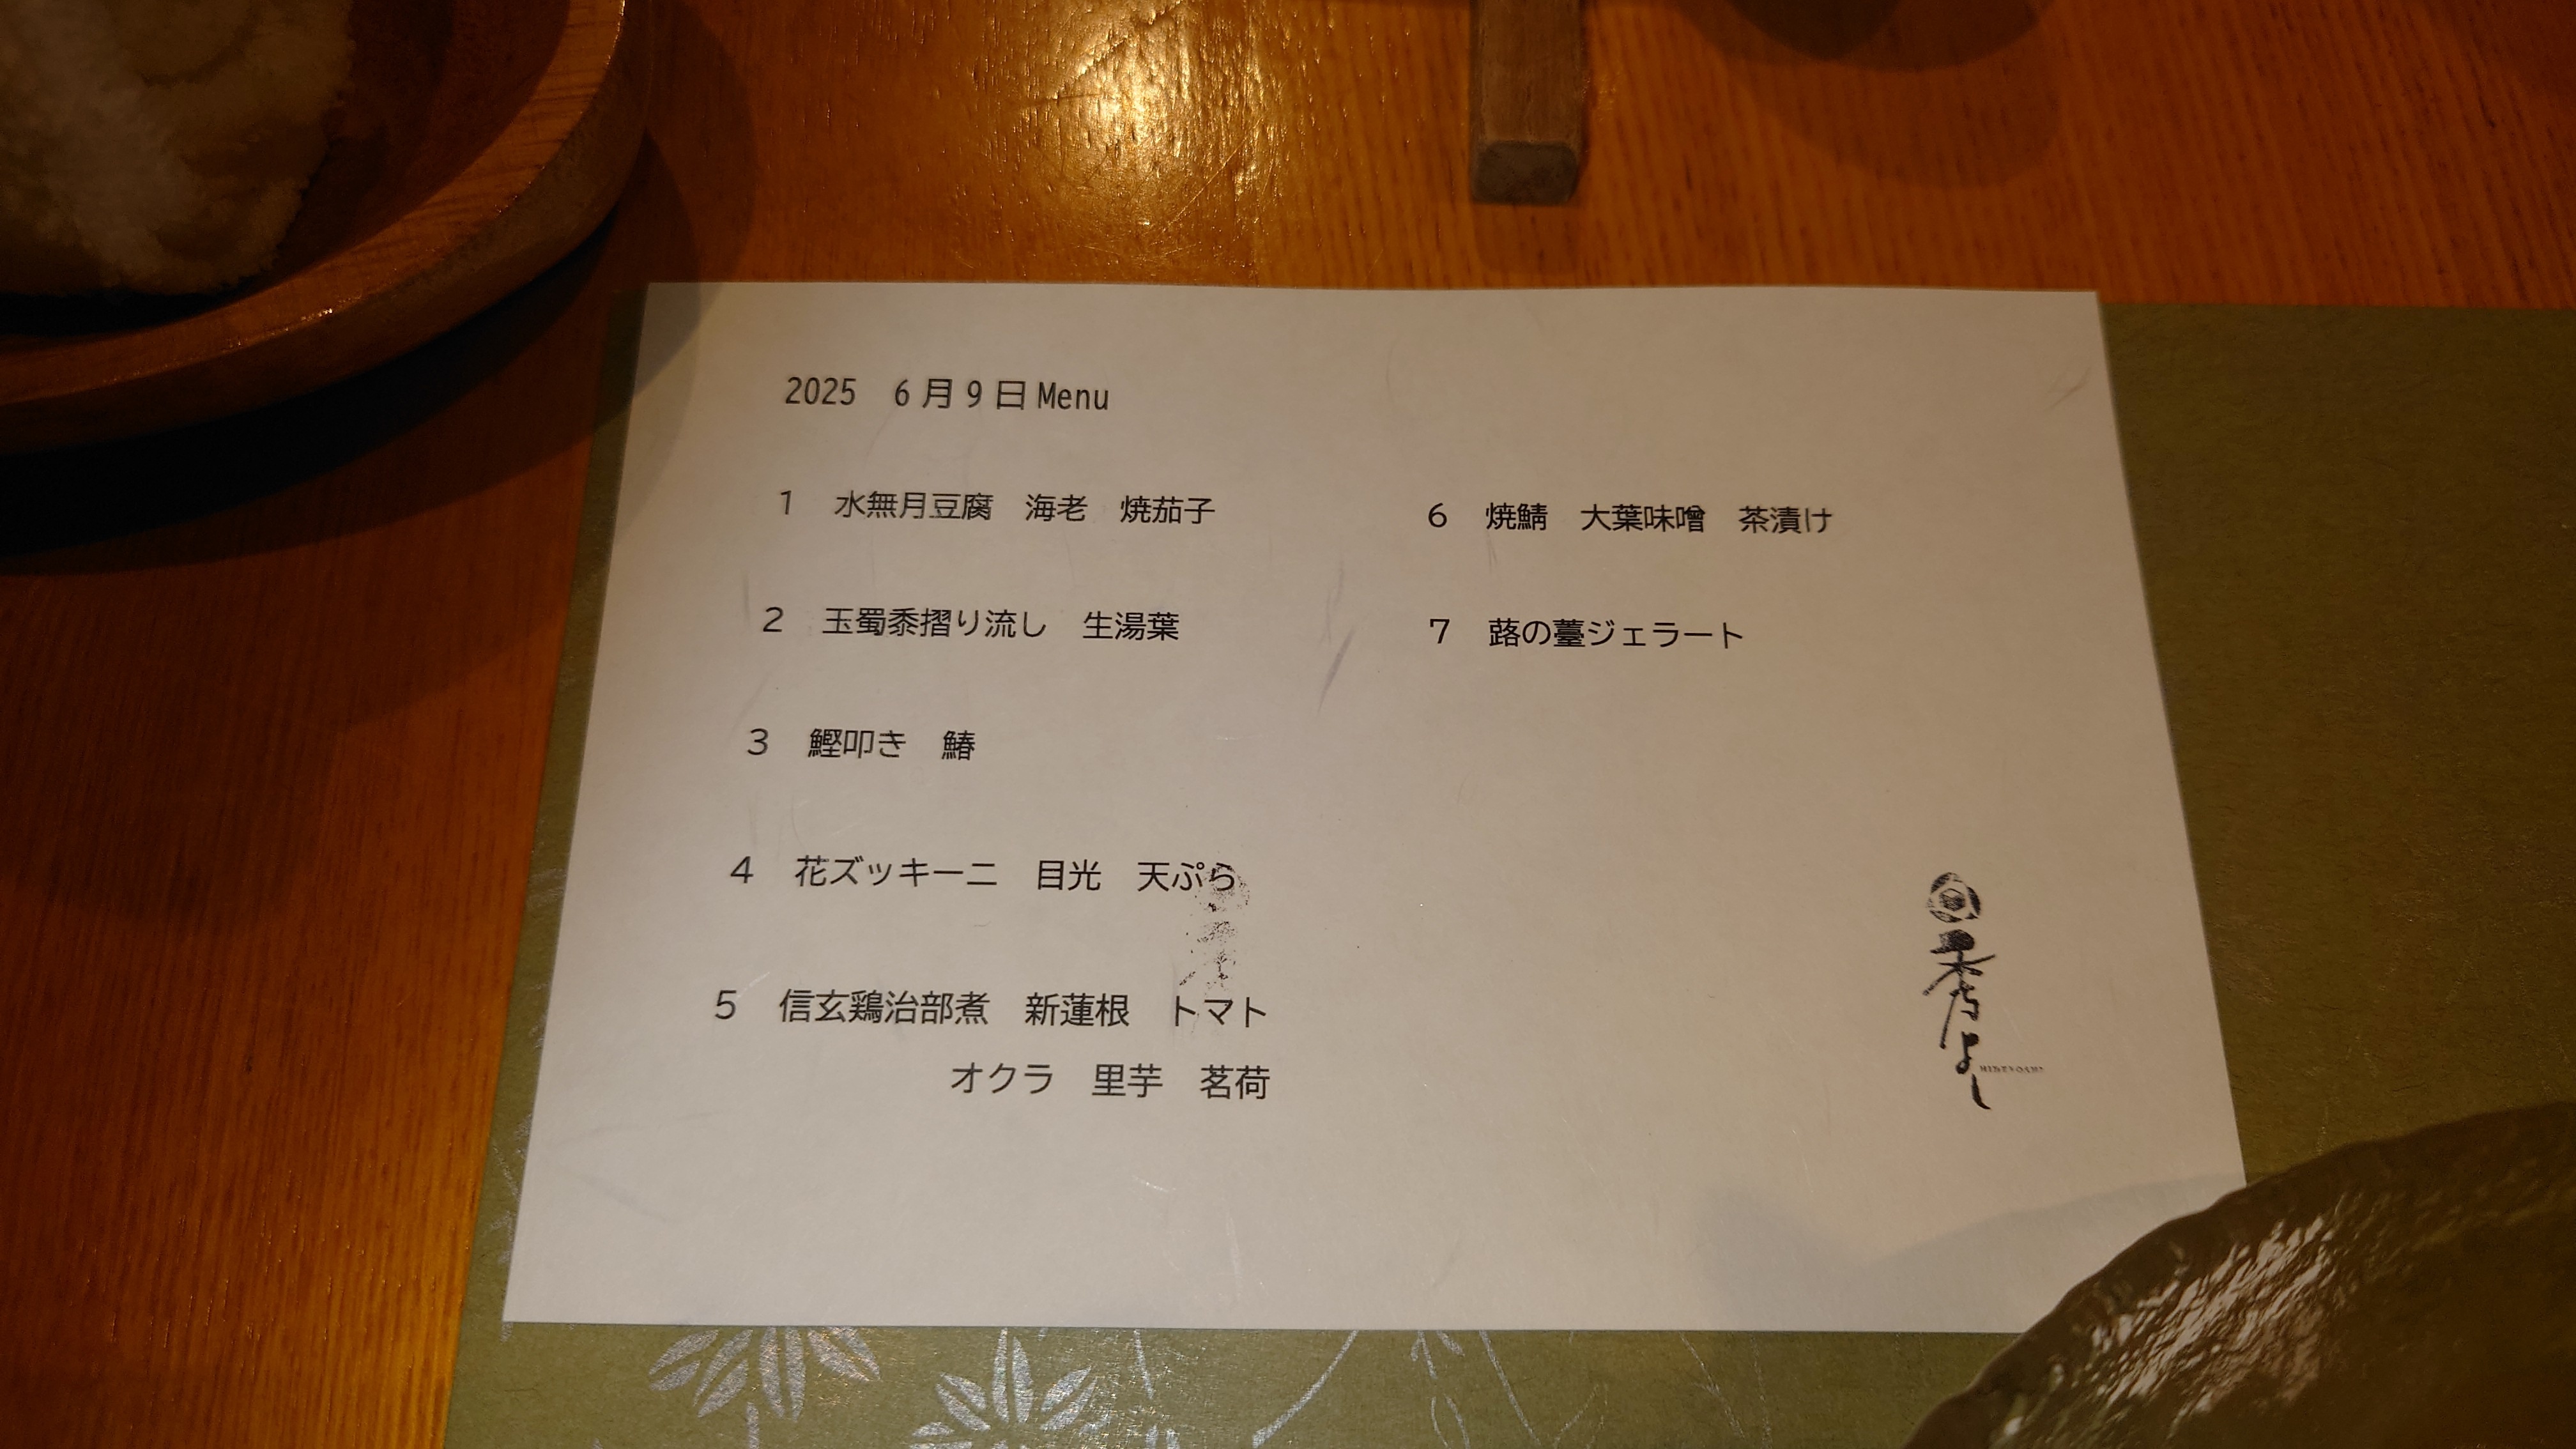 2025　6月9日Menu
1　水無月豆腐　海老　焼茄子
2　玉蜀黍摺り流し　生湯葉
3　鰹叩き　鰆
4　花ズッキーニ　目光　天ぷら
5　信玄鶏治部煮　新蓮根　トマト
オクラ　里芋　茗荷
6　焼鯖　大葉味噌　茶漬け
7　蕗の薹ジェラート
秀よし
HIDEYOSHI